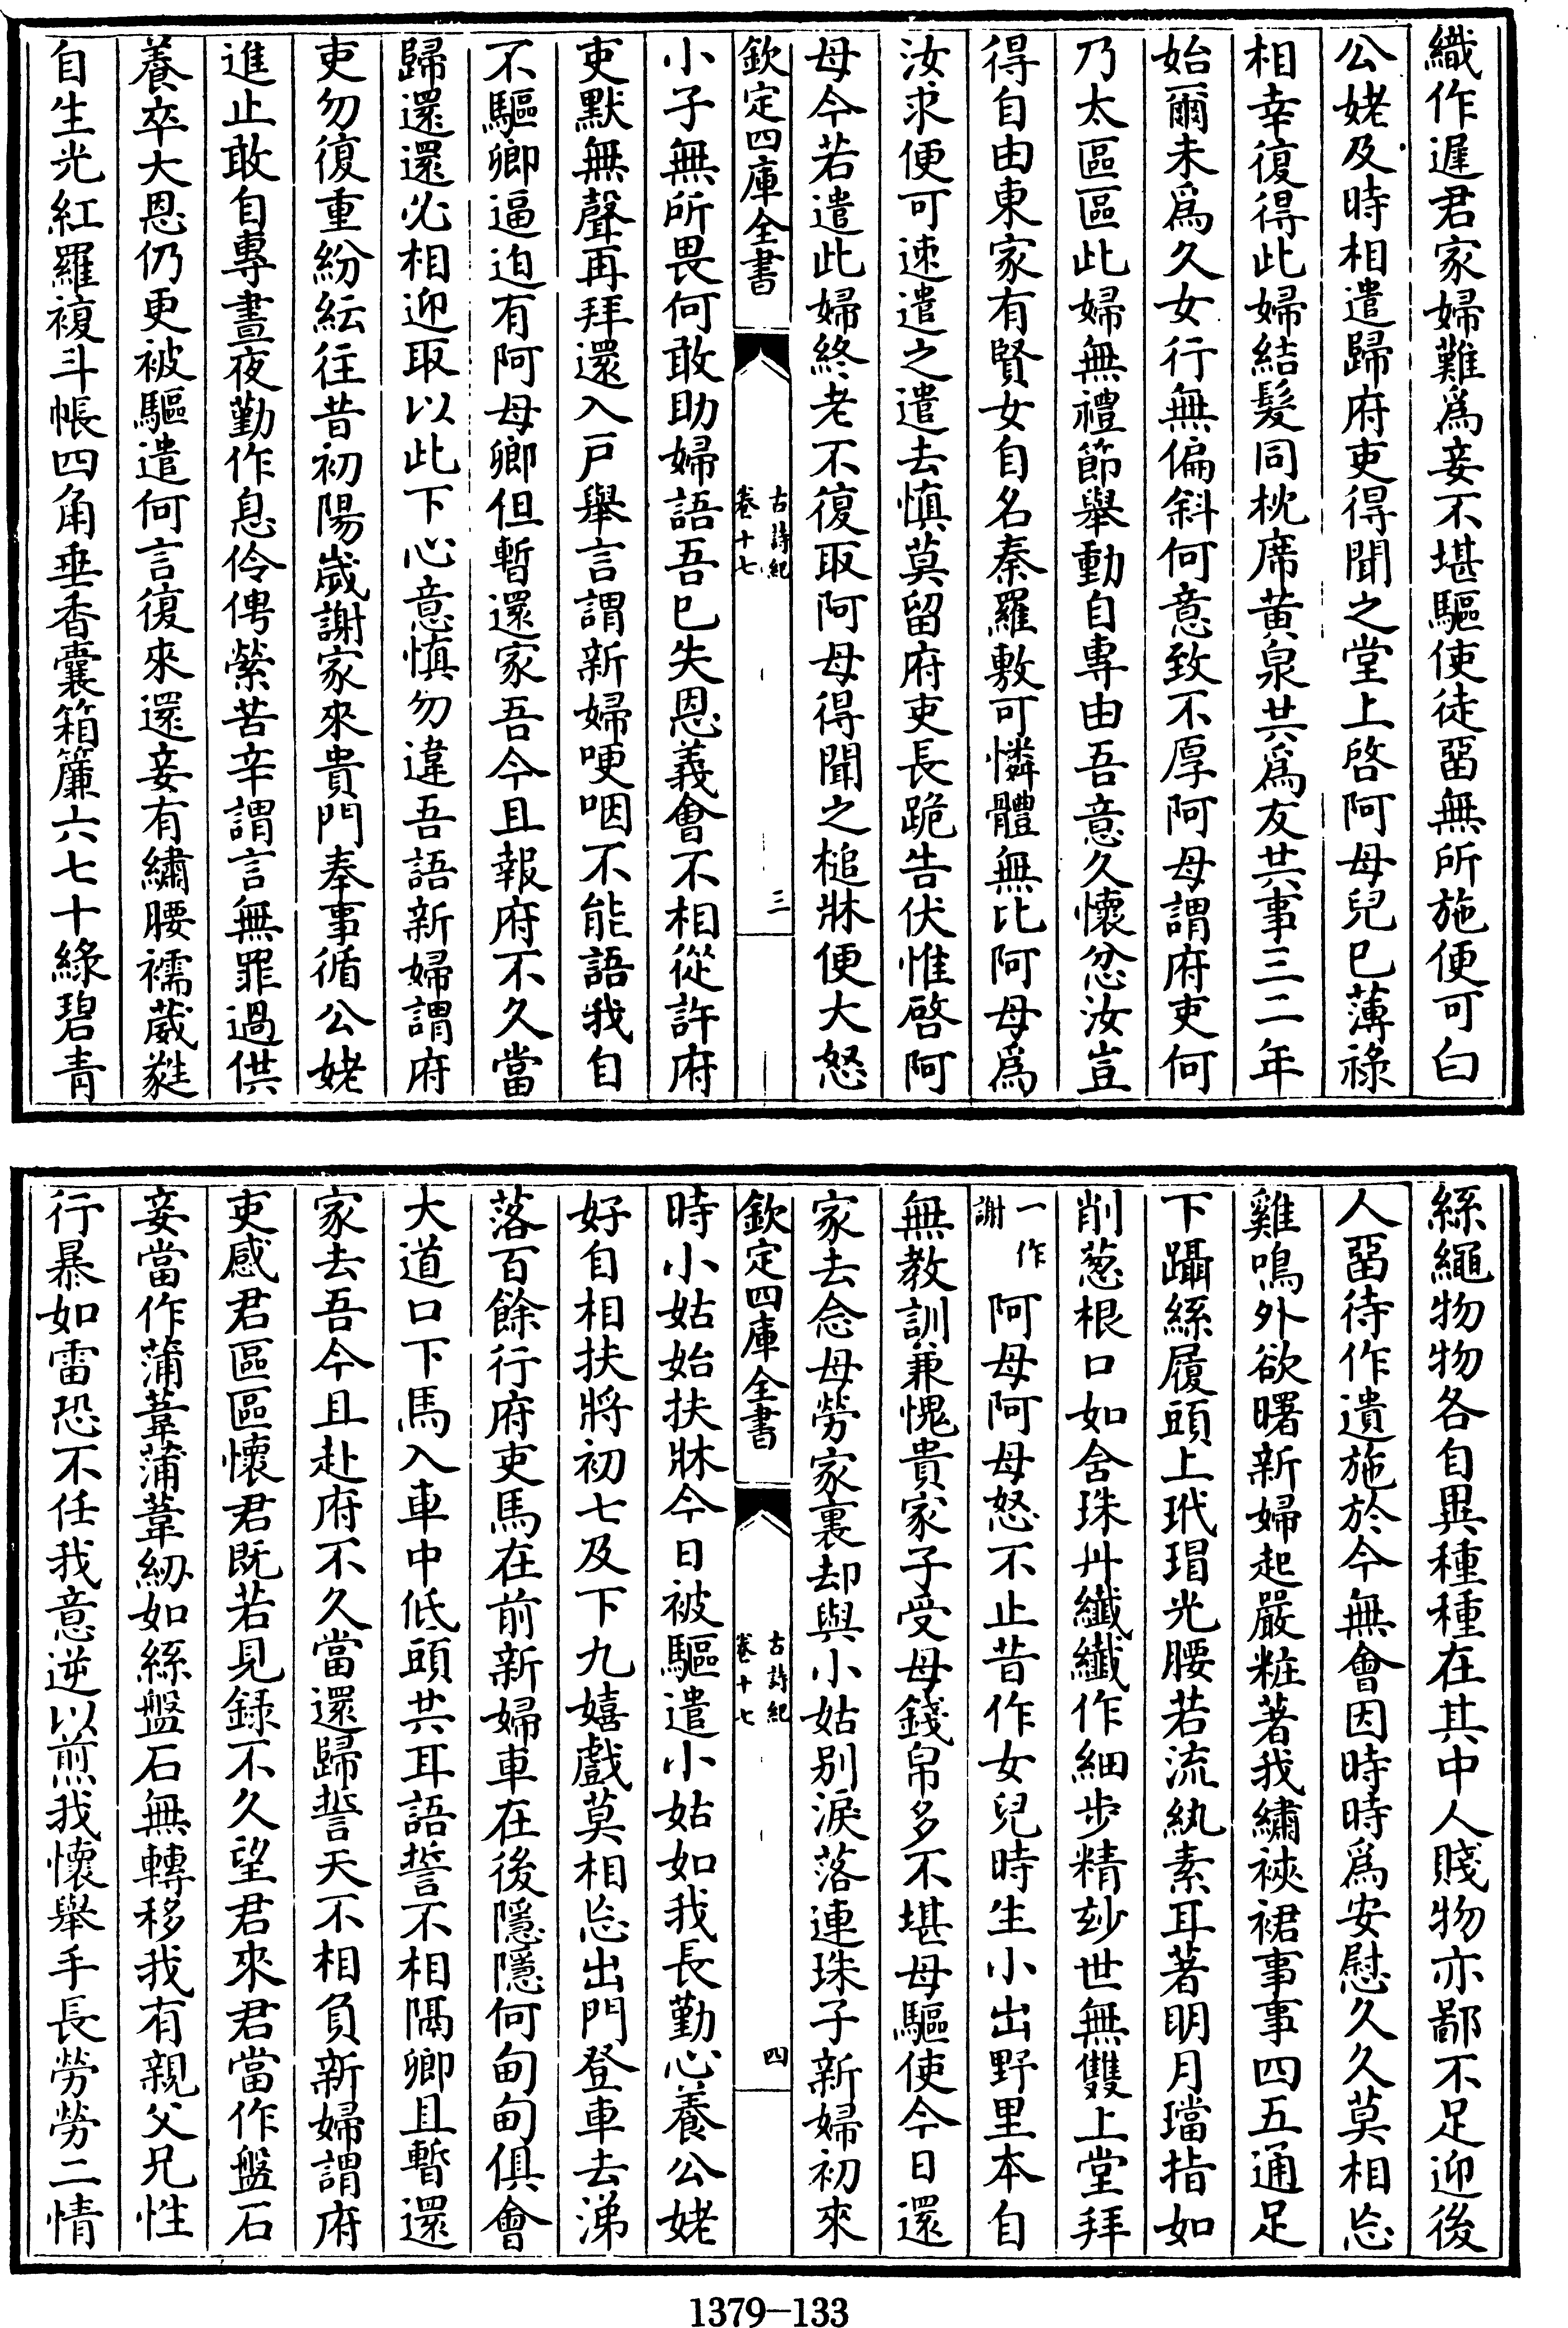 織作遲君家婦難爲妾不堪驅使徒留無所施便可白
公姥及時相遣歸府吏得聞之堂上啓阿母兒已薄祿
相幸復得此婦結髮同枕席黃泉共爲友共事三二年
始爾未爲久女行無偏斜何意致不厚阿母謂府吏何
乃太區區此婦無禮節舉動自專由吾意久懷忿汝豈
得自由東家有賢女自名秦羅敷可憐體無比阿母爲
汝求便可速遣之遣去慎莫留府吏長跪告伏惟啓阿
母今若遣此婦終老不復取阿母得聞之槌牀便大怒
欽定四庫全書 古詩紀 卷十七 三
小子無所畏何敢助婦語吾已失恩義會不相從許府
吏默無聲再拜還入戶舉言謂新婦哽咽不能語我自
不驅卿逼迫有阿母卿但暫還家吾今且報府不久當
歸還還必相迎取以此下心意慎勿違吾語新婦謂府
吏勿復重紛紜往昔初陽歲謝家來貴門奉事循公姥
進止敢自專晝夜勤作息伶俜縈苦辛謂言無罪過供
養卒大恩仍更被驅遣何言復來還妾有繡腰襦葳蕤
自生光紅羅複斗帳四角垂香囊箱簾六七十綠碧青
絲繩物物各自異種種在其中人賤物亦鄙不足迎後
人留待作遺施於今無會因時時爲安慰久久莫相忘
雞鳴外欲曙新婦起嚴粧著我繡裌裙事事四五通足
下躡絲履頭上玳瑁光腰若流紈素耳著明月璫指如
削葱根口如含珠丹纖纖作細步精妙世無雙上堂拜
一作謝 阿母阿母怒不止昔作女兒時生小出野里本自
無教訓兼愧貴家子受母錢帛多不堪母驅使今日還
家去念母勞家裏却與小姑別淚落連珠子新婦初來
欽定四庫全書 古詩紀 卷十七 四
時小姑始扶牀今日被驅遣小姑如我長勤心養公姥
好自相扶將初七及下九嬉戲莫相忘出門登車去涕
落百餘行府吏馬在前新婦車在後隱隱何甸甸俱會
大道口下馬入車中低頭共耳語誓不相隔卿且暫還
家去吾今且赴府不久當還歸誓天不相負新婦謂府
吏感君區區懷君既若見錄不久望君來君當作盤石
妾當作蒲葦蒲葦紉如絲盤石無轉移我有親父兄性
行暴如雷恐不任我意逆以煎我懷舉手長勞勞二情
1379-133